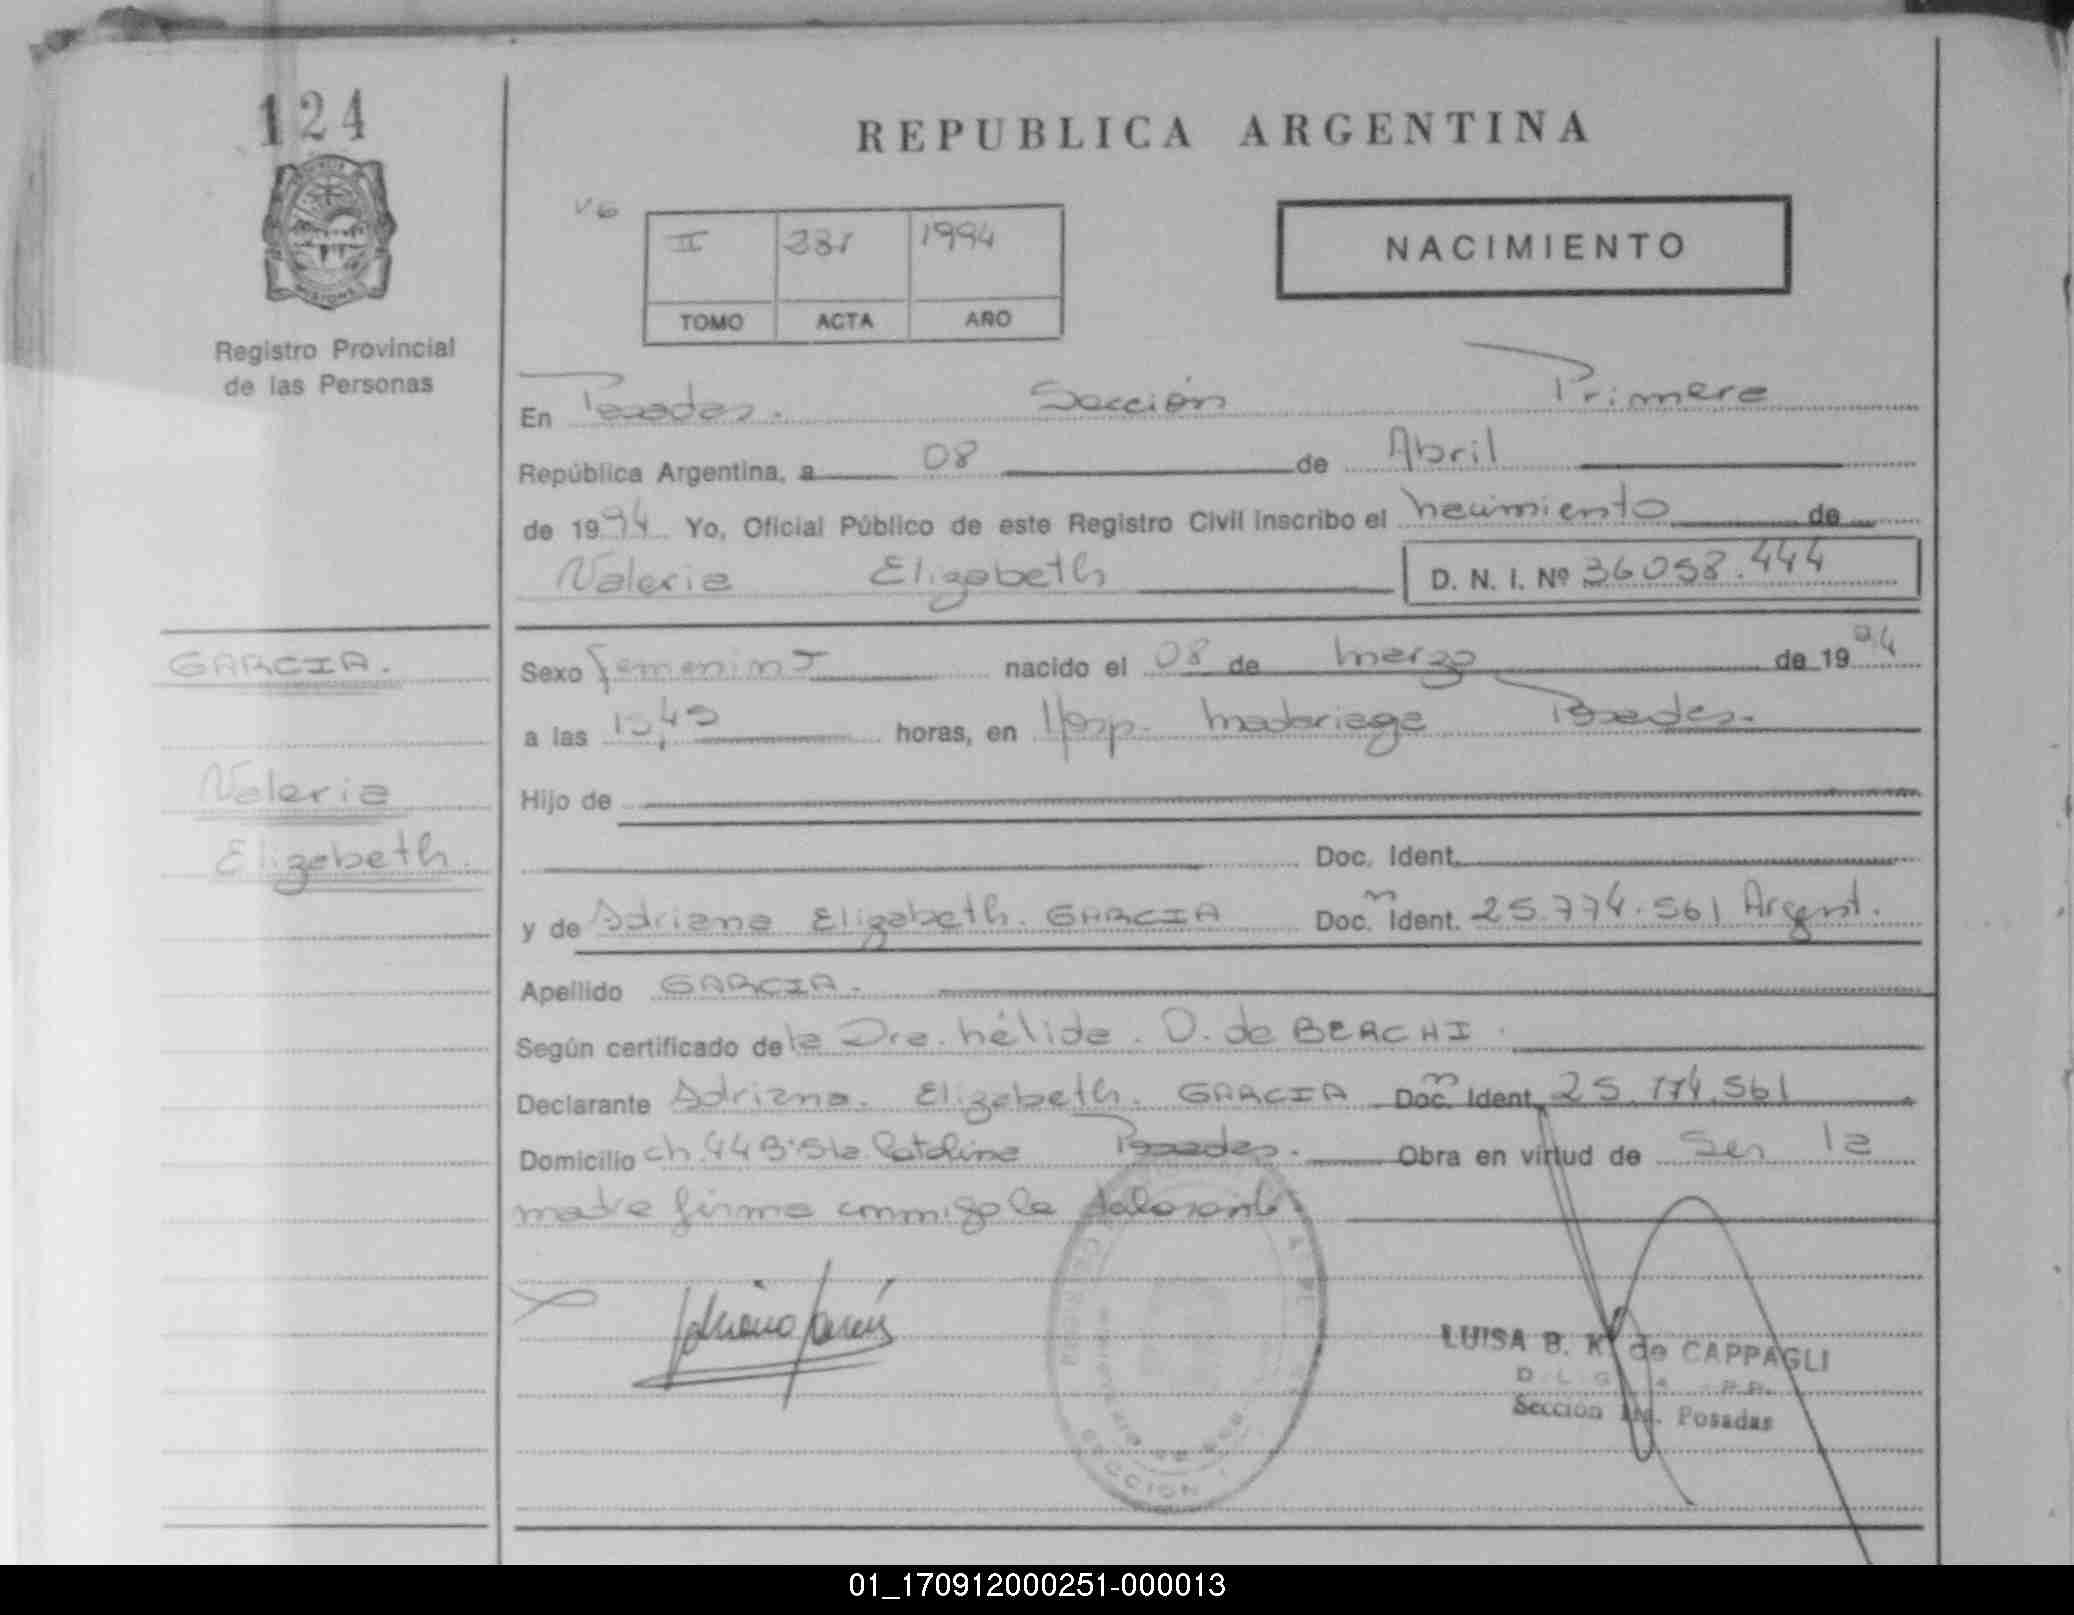 124
REPUBLICA ARGENTINA
V6
II 231 1994
TOMO ACTA AÑO
NACIMIENTO
Registro Provincial
de las Personas
En Posadas. Sección Primera
República Argentina, a 08 de Abril
de 1994 Yo, Oficial Público de este Registro Civil inscribo el nacimiento de
Valeria Elizabeth D. N. I. Nº 36058.444
GARCIA.
Valeria
Elizabeth.
Sexo femenino nacido el 08 de marzo de 1994
a las 15,45 horas, en Hosp. Madariaga Posadas.
Hijo de
Doc. Ident.
y de Adriana Elizabeth. GARCIA Doc. Ident. 25.774.561 Argent.
Apellido GARCIA.
Según certificado de la Dra. Nélida. O. de BERCHI.
Declarante Adriana. Elizabeth. GARCIA Doc. Ident. 25.774.561
Domicilio ch. 44 Bº Sta. Catalina Posadas. Obra en virtud de Ser la
madre firma conmigo la
SECCION 1
LUISA B. K. de CAPPAGLI
Sección Posadas
01_170912000251-000013